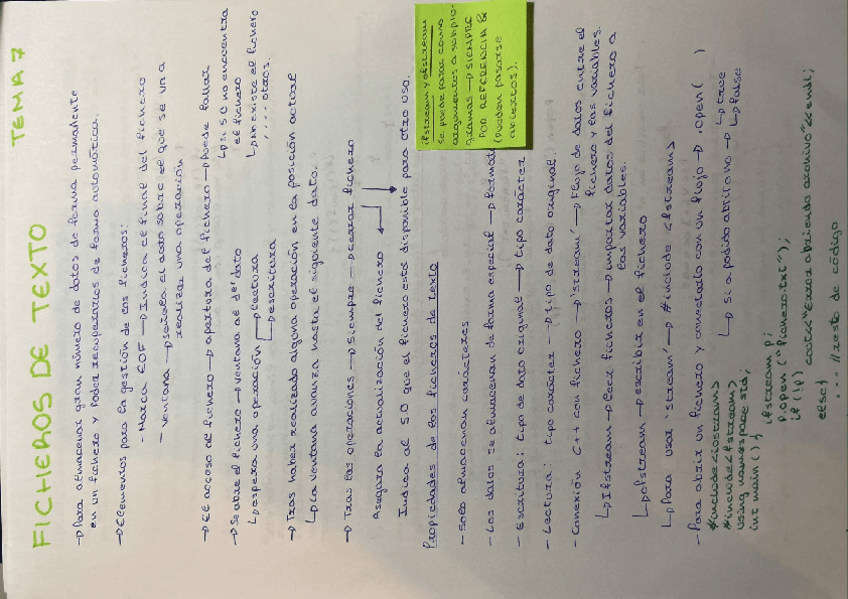 TEMA 7
FICHEROS DE TEXTO
→ Para almacenar gran número de datos de forma permanente
en un fichero y poder recuperarlos de forma automática.
→ Elementos para la gestión de los ficheros:
- Marca EOF → Indica el final del fichero
- Ventana → señala el dato sobre el que se va a
realizar una operación
→ El acceso al fichero → apertura del fichero → Puede fallar
↳ si SO no encuentra
el fichero
↳ no existe el fichero
, ... otros.
→ Se abre el fichero → ventana al 1er dato
↳ espera una operación → lectura
→ escritura
→ Tras haber realizado alguna operación en la posición actual
↳ la ventana avanza hasta el siguiente dato.
→ Tras las operaciones → siempre → cerrar fichero
Asegura la actualización del fichero
Indica al SO que el fichero está disponible para otro uso.
ifstream y ofstream
se puede pasar como
argumentos a subpro-
gramas → SIEMPRE
POR REFERENCIA &
(pueden pasarse
abiertos).
Propiedades de los ficheros de texto
- Solo almacenan carácteres
- Los datos se almacenan de forma especial → format
- Escritura: tipo de dato original → tipo carácter
- Lectura: tipo carácter → tipo de dato original.
- Conexión C++ con fichero → 'stream' → Flujo de datos entre el
fichero y las variables.
↳ Ifstream → leer ficheros → importar datos del fichero a
las variables.
↳ ofstream → escribir en el fichero
↳ Para usar 'stream' → #include <fstream>
- Para abrir un fichero y conectarlo con un flujo → .open( )
↳ si a podido abrir o no → true
↳ false
#include<iostream>
#include<fstream>
using namespace std;
int main(){ ifstream p;
p.open ("fichero.txt");
if (!p) cout<<"Error abriendo archivo"<<endl;
else{
... //resto de código